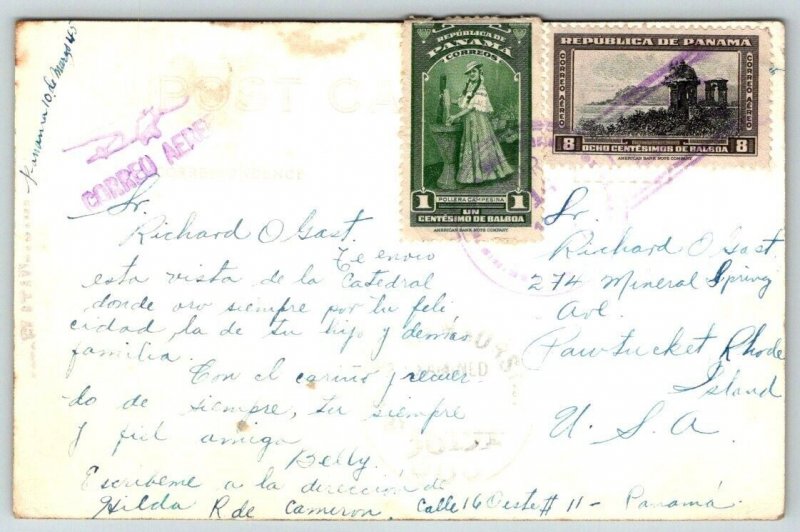 Panama 10 de Marzo 45
POST CA
CORRESPONDENCE
CORREO AEREO
REPÚBLICA DE
PANAMÁ
CORREOS
POLLERA CAMPESINA
1 UN 1
CENTÉSIMO DE BALBOA
AMERICAN BANK NOTE COMPANY
REPÚBLICA DE PANAMÁ
CORREO AÉREO
CORREO AÉREO
8 OCHO CENTÉSIMOS DE BALBOA 8
AMERICAN BANK NOTE COMPANY
Sr.
Richard O Gast.
Te envio
esta vista de la Catedral
donde oro siempre por tu feli
cidad, la de tu hijo y demás
familia.
Con el cariño y recuer-
do de siempre, tu siempre
y fiel amiga
Belly.
Escribeme a la dirección de
Hilda R de Cameron, Calle 16 Oeste # 11 - Panamá.
Sr.
Richard O Gast.
274 Mineral Spring
Ave.
Pawtucket Rhode
Island
U. S. A